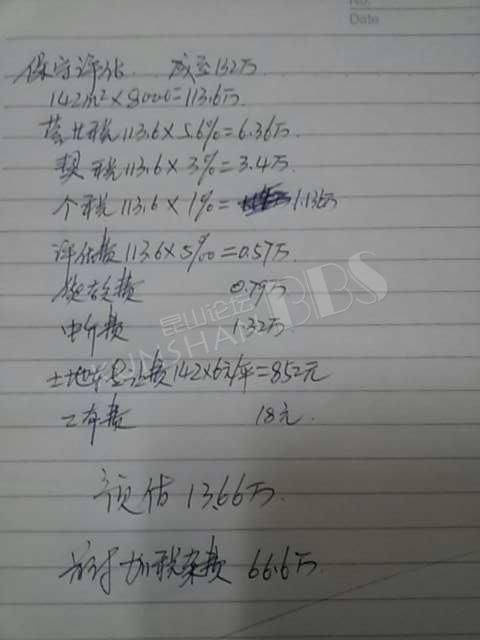 No.
Date
保守评估 成交132万
142m²×8000=113.6万
营业税113.6×5.6%=6.36万
契税113.6×3%=3.4万
个税113.6×1%= 1.136万
评估费113.6×5‰=0.57万
0.79万
中介费 1.32万
土地出让费142×6元/年=852元
工本费 18元.
预估 13.66万.
首付加税杂费 66.6万
昆山论坛
KUNSHAN BBS